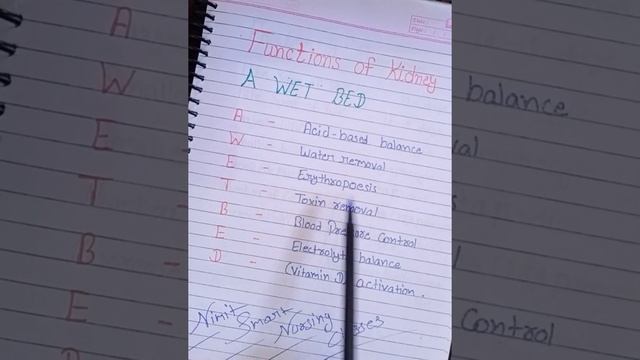 Functions of Kidney
A WET BED
A - Acid-based balance
W - Water removal
E - Erythropoesis
T - Toxin removal
B - Blood Pressure Control
E - Electrolyte balance
D - (Vitamin D) activation.
Nimit Smart Nursing Classes